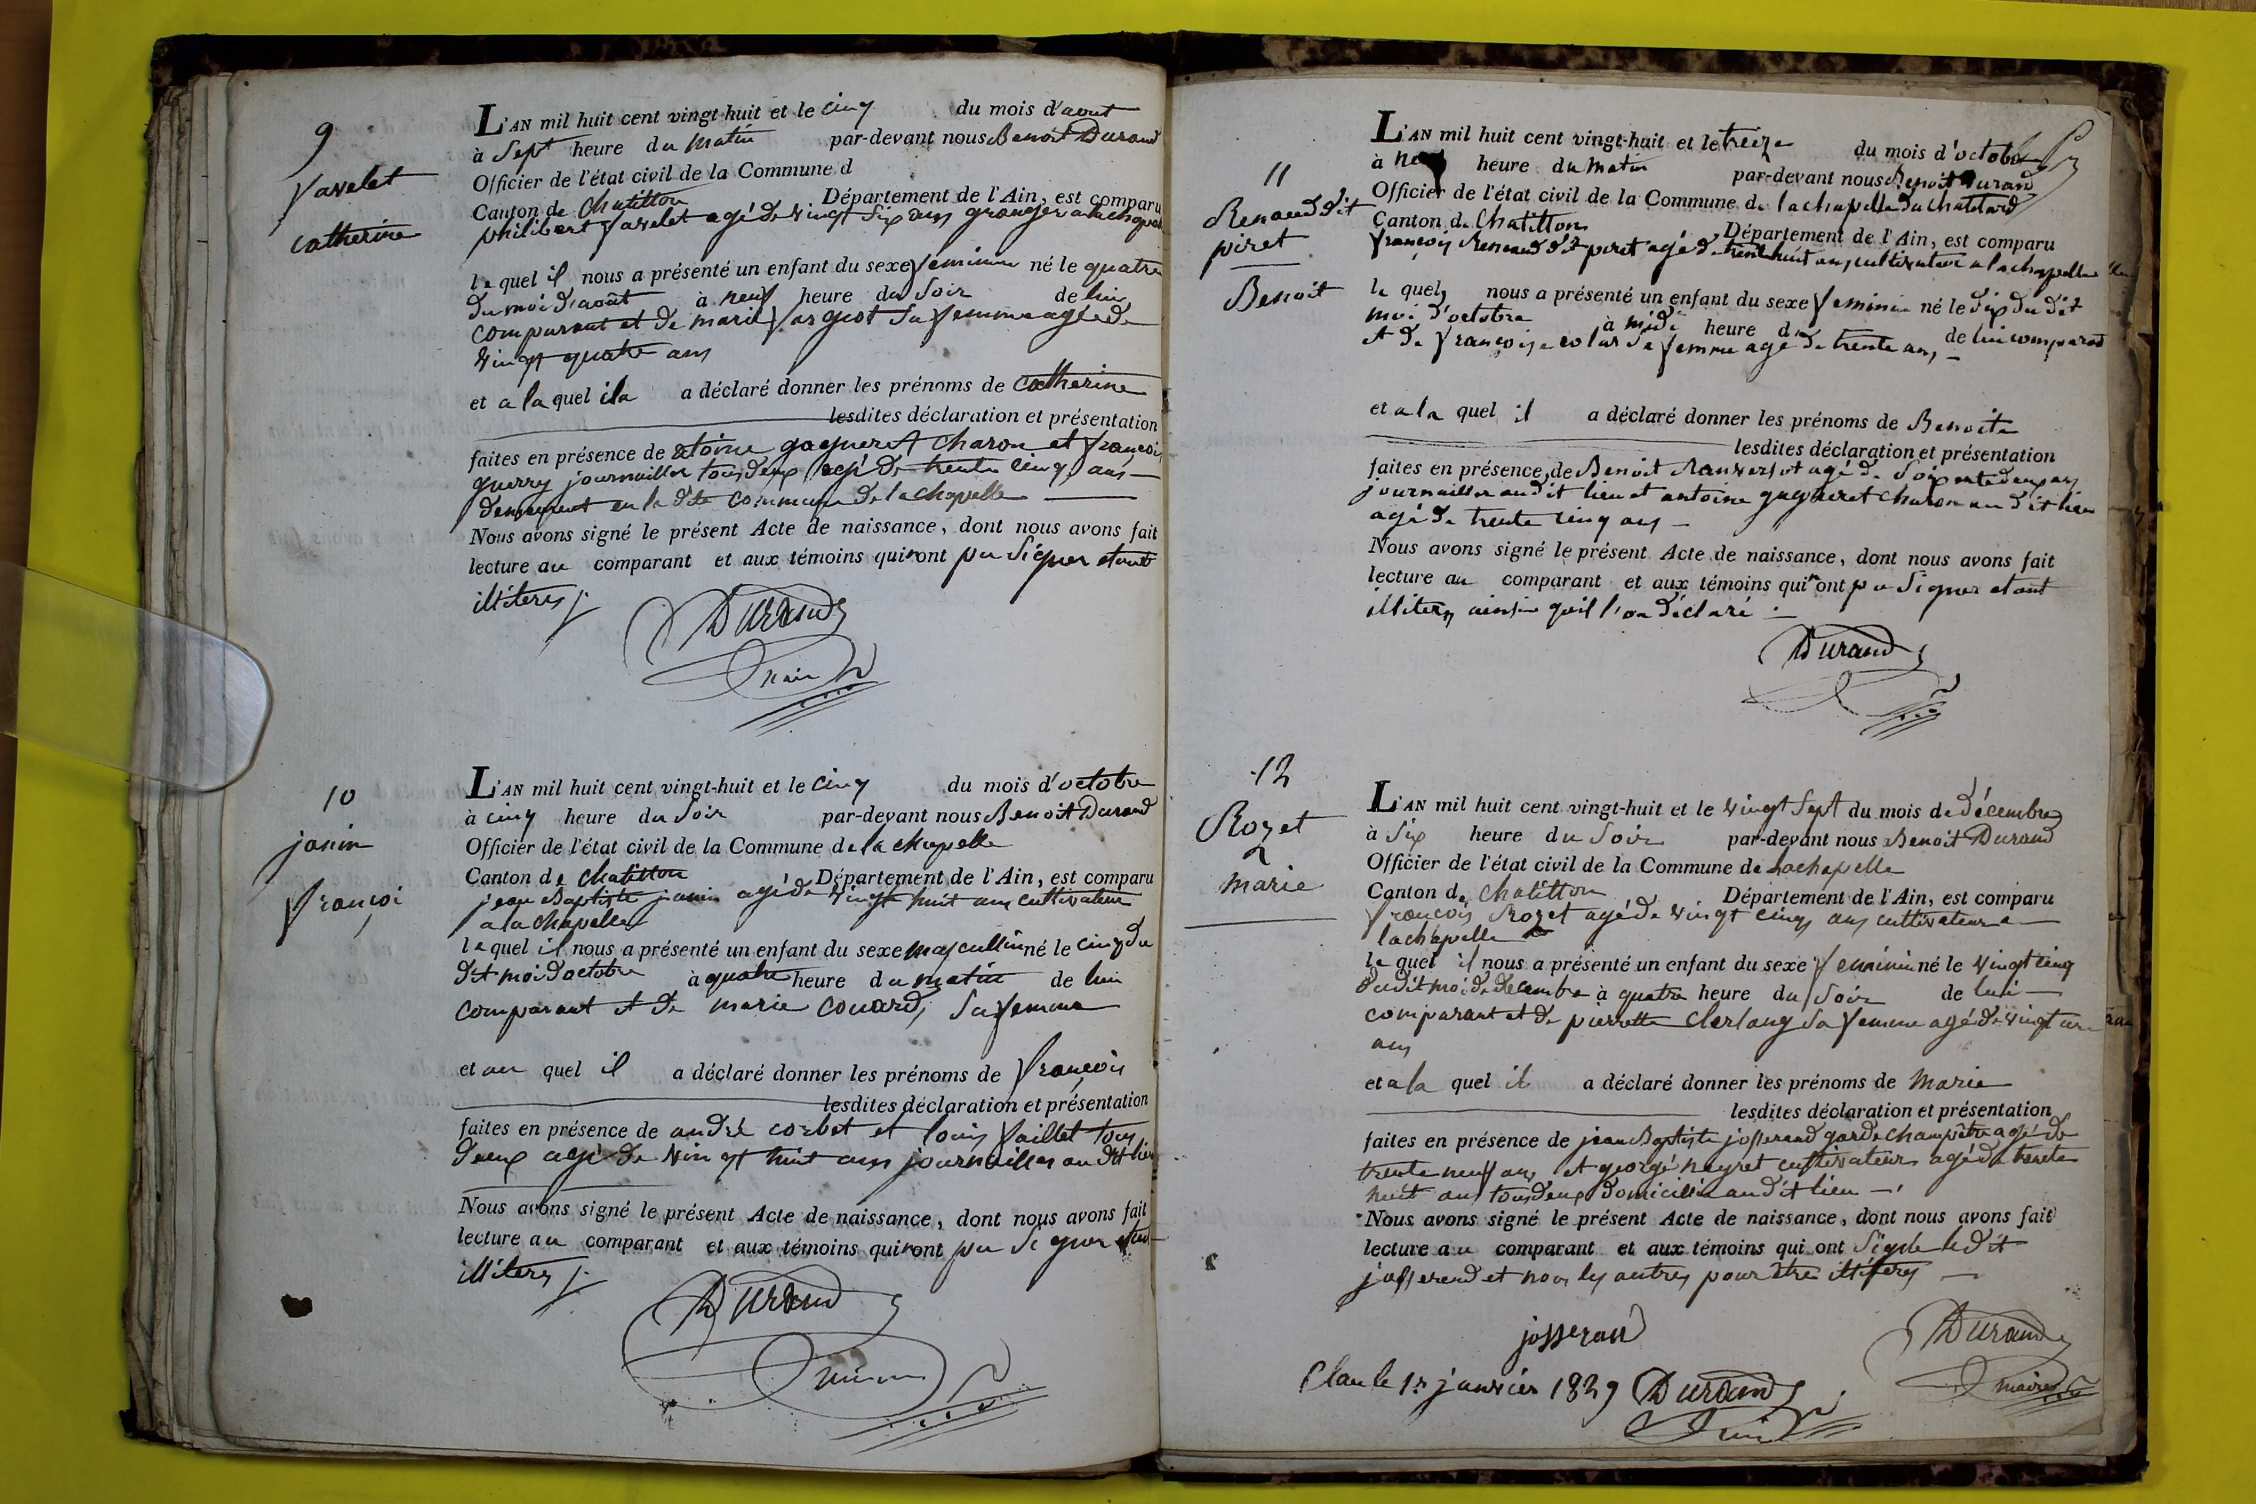 9
favelet
catherine
L'AN mil huit cent vingt-huit et le cinq du mois d'aout
à Sept heure du matin par-devant nous Benoit Durand
Officier de l'état civil de la Commune d
Canton de Chatillon Département de l'Ain, est comparu
philibert favelet agé de vingt Six ans granger a lachapelle
le quel il nous a présenté un enfant du sexe feminin né le quatre
du moi d'août à neuf heure du Soir de lui
comparant et de marie fargeot Sa femme agée de
vingt quatre ans
et a la quel il a a déclaré donner les prénoms de catherine
lesdites déclaration et présentation
faites en présence de atoine gagneret Charon et francois
guerry journaillier tous deux agé de trente cinq ans
demeurent en la dite commune de la chapelle
Nous avons signé le présent Acte de naissance, dont nous avons fait
lecture au comparant et aux témoins qui n'ont pu Signer etant
illiterés
Durand
maire
10
janin
françoi
L'AN mil huit cent vingt-huit et le cinq du mois d'octobre
à cinq heure du Soir par-devant nous Benoit Durand
Officier de l'état civil de la Commune de la chapelle
Canton de chatillon Département de l'Ain, est comparu
jean Baptiste janin agé de vingt huit ans cultivateur
a la chapelle
le quel il nous a présenté un enfant du sexe masculin né le cinq du
dit moi d'octobre à quatre heure du matin de lui
comparant et de marie couard, Sa femme
et au quel il a déclaré donner les prénoms de françois
lesdites déclaration et présentation
faites en présence de andré corbet et louis faillet tous
deux agé de vingt huit ans journaillier au dit lieu
Nous avons signé le présent Acte de naissance, dont nous avons fait
lecture au comparant et aux témoins qui n'ont pu Signer etant
illiterés
Durand
maire
11
Renaud dit
piret
Benoit
L'AN mil huit cent vingt-huit et le treize du mois d'octobre
à heure du matin par-devant nous Benoit Durand
Officier de l'état civil de la Commune de lachapelle du chatelard
Canton de Chatillon Département de l'Ain, est comparu
françois Renaud dit piret agé de trente huit ans cultivateur a lachapelle
le quel nous a présenté un enfant du sexe feminin né le dix du dit
moi d'octobre à midi heure d de lui comparant
et de françoise colas Sa femme agé de trente ans
et a la quel il a déclaré donner les prénoms de Benoite
lesdites déclaration et présentation
faites en présence de Benoit agé de Soixente deux ans
journaillier au dit lieu et antoine gagneret charon au dit lieu
agé de trente cinq ans
Nous avons signé le présent Acte de naissance, dont nous avons fait
lecture au comparant et aux témoins qui n'ont pu Signer etant
illiterés ainsi qu'il l'on déclaré
Durand
12
Rozet
marie
L'AN mil huit cent vingt-huit et le vingt Sept du mois de décembre
à Six heure du Soir par-devant nous Benoit Durand
Officier de l'état civil de la Commune de Lachapelle
Canton de Chatillon Département de l'Ain, est comparu
françois Rozet agé de vingt cinq ans cultivateur a
lachapelle
le quel il nous a présenté un enfant du sexe feminin né le vingt cinq
du dit moi de décembre à quatre heure du Soir de lui
comparant et de pierrette Clerlang Sa femme agé de vingt un
ans
et a la quel il a déclaré donner les prénoms de Marie
lesdites déclaration et présentation
faites en présence de jean Baptiste josserand garde champêtre agé de
trente neuf ans et georgé neyret cultivateur agé de trente
huit ans tous deux domicilié au dit lieu
Nous avons signé le présent Acte de naissance, dont nous avons fait
lecture au comparant et aux témoins qui ont Signé le dit
josserend et non les autres pour être illiterés
josseran
Durand
maire
Clau le 1er janvier 1829 Durand